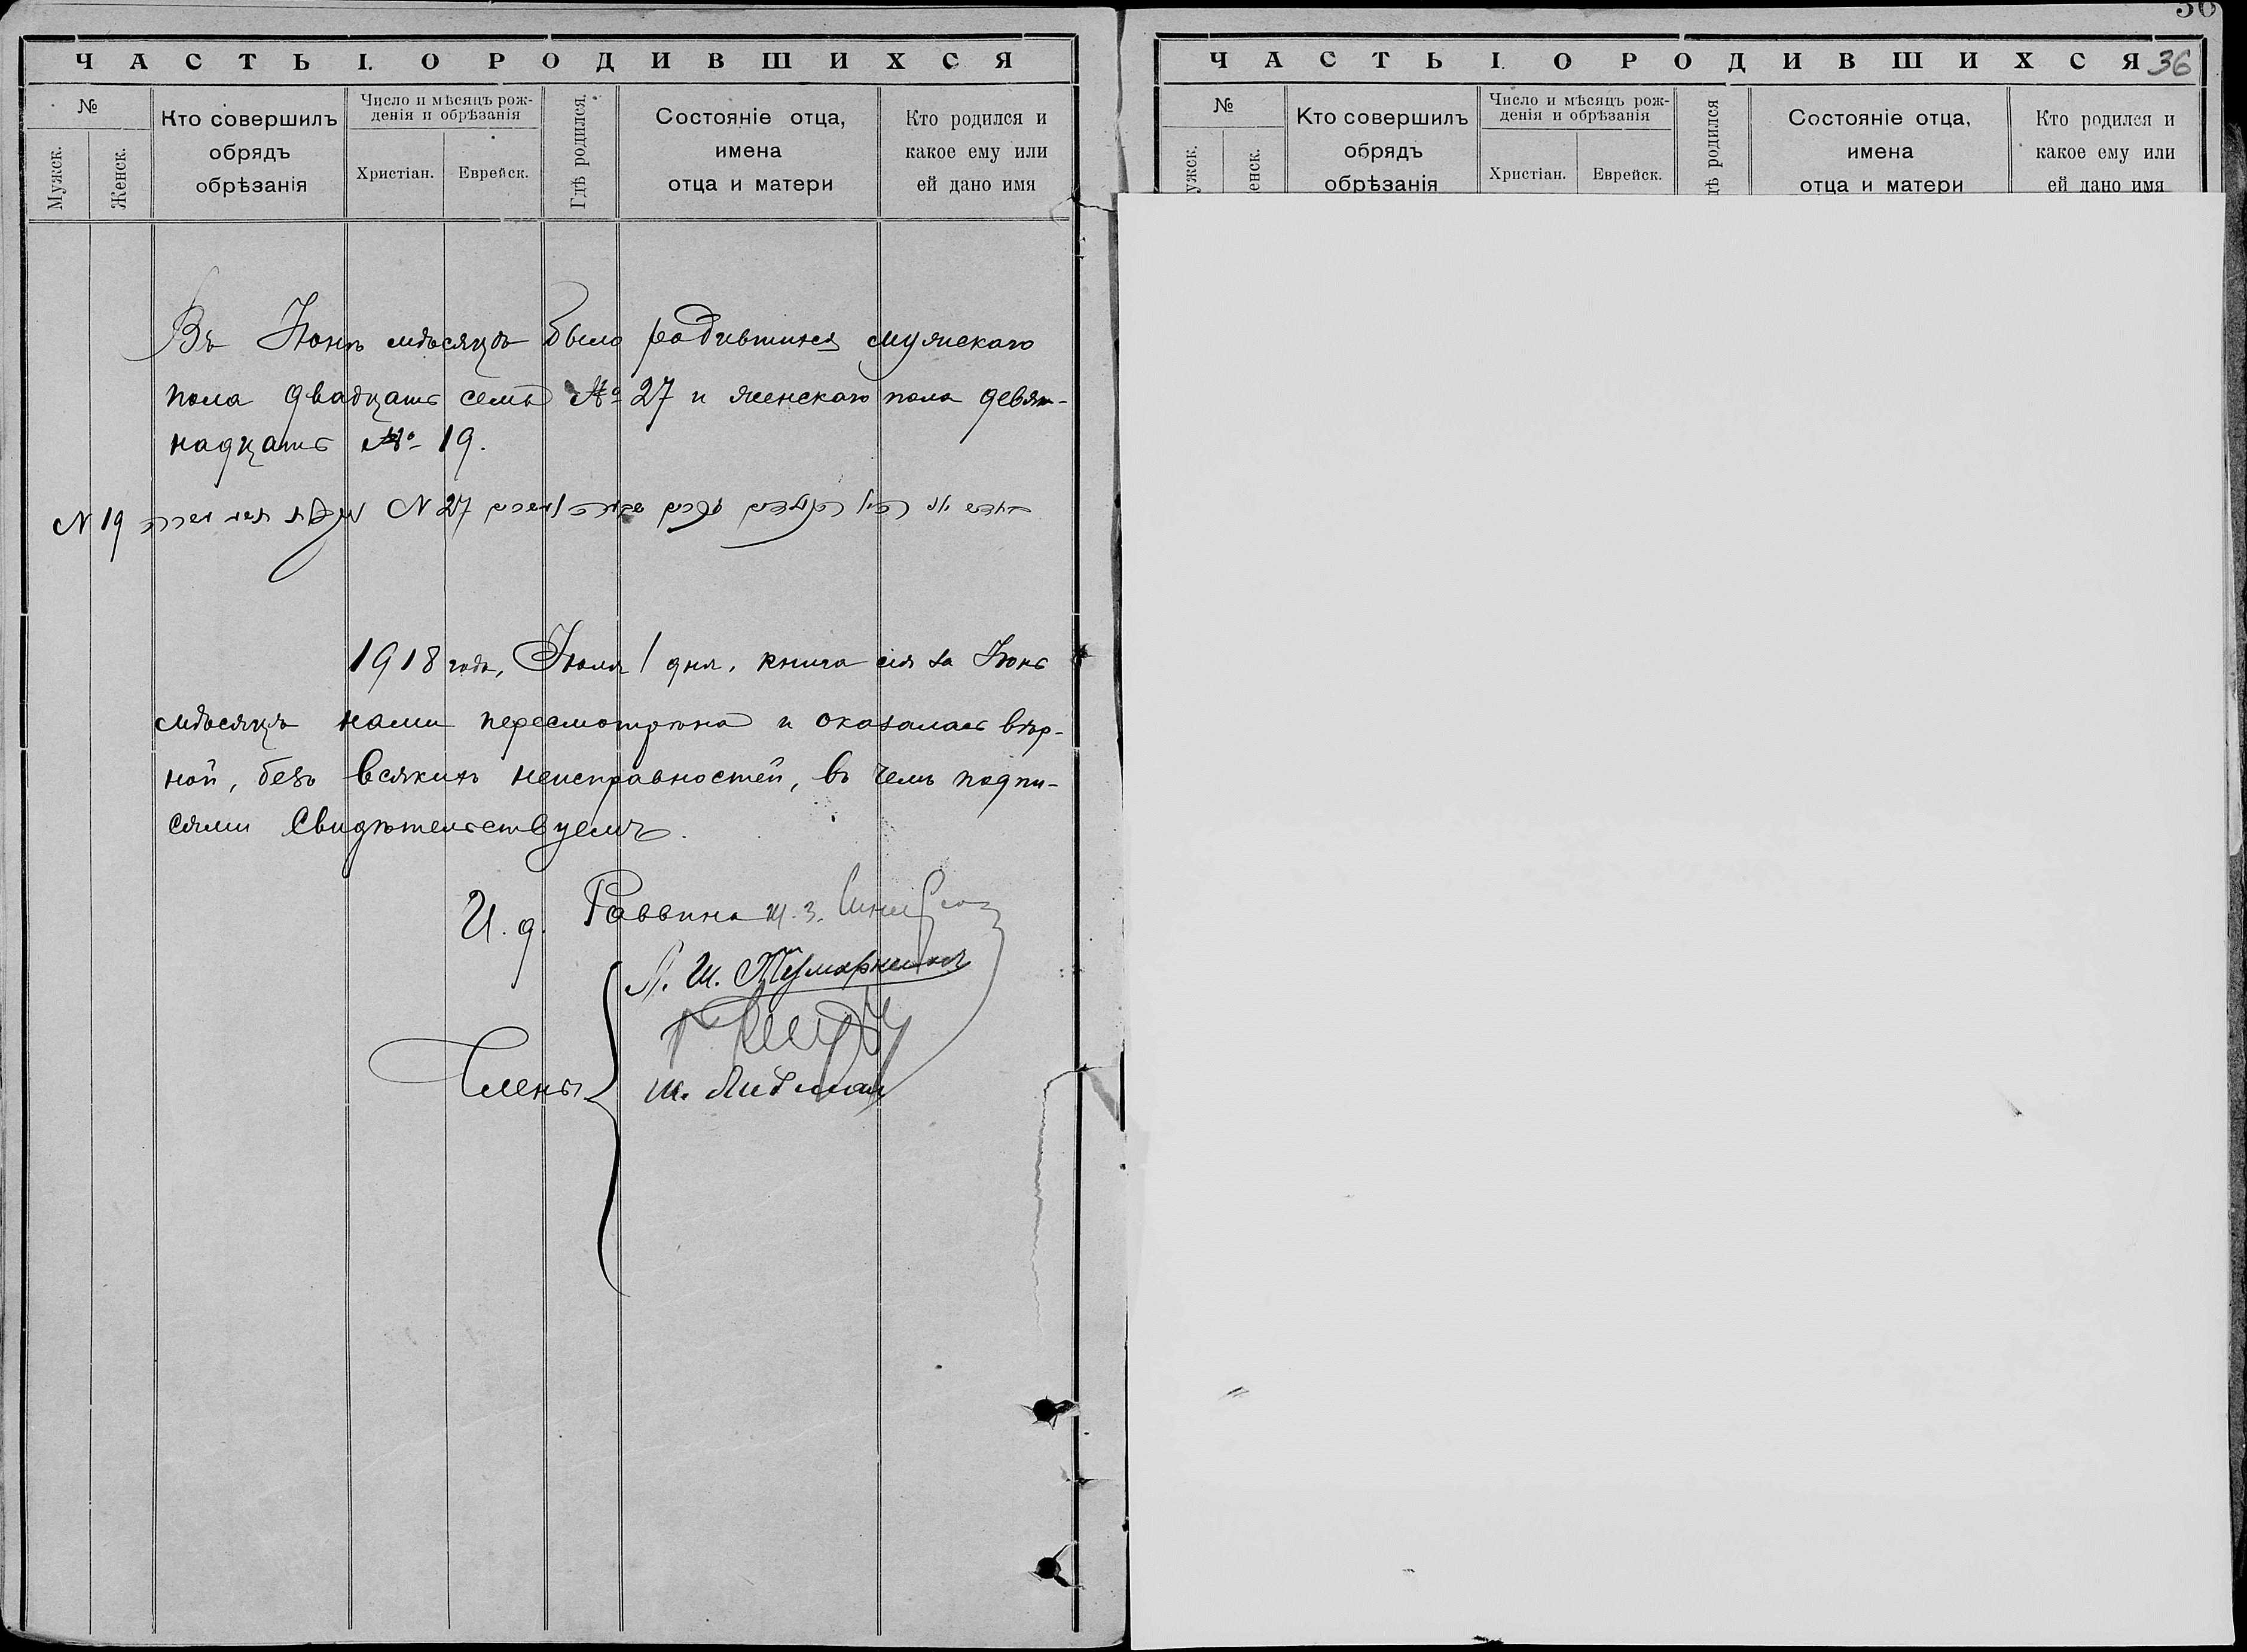 ЧАСТЬ I. О РОДИВШИХСЯ
№
Мужск.
Женск.
Кто совершилъ
обрядъ
обрѣзанія
Число и мѣсяцъ рож-
денія и обрѣзанія
Христіан.
Еврейск.
Гдѣ родился.
Состояніе отца,
имена
отца и матери
Кто родился и
какое ему или
ей дано имя
Въ Юнѣ мѣсяцѣ было родившихся мужскаго
пола двадцать семь № 27 и женскаго пола девят-
надцать № 19.
N 27
N 19
1918 года, Юля 1 дня, книга сія за Юнь
мѣсяцъ нами пересмотрѣна и оказалась вѣр-
ной, безъ всякихъ неисправностей, въ чемъ подпи-
сями свидѣтельствуемъ.
И. д. Раввина Ш. З.
Члены
Ш.
Ш.
ЧАСТЬ I. О РОДИВШИХСЯ
36
№
ужск.
енск.
Кто совершилъ
обрядъ
обрѣзанія
Число и мѣсяцъ рож-
денія и обрѣзанія
Христіан.
Еврейск.
ѣ родился
Состояніе отца,
имена
отца и матери
Кто родился и
какое ему или
ей дано имя